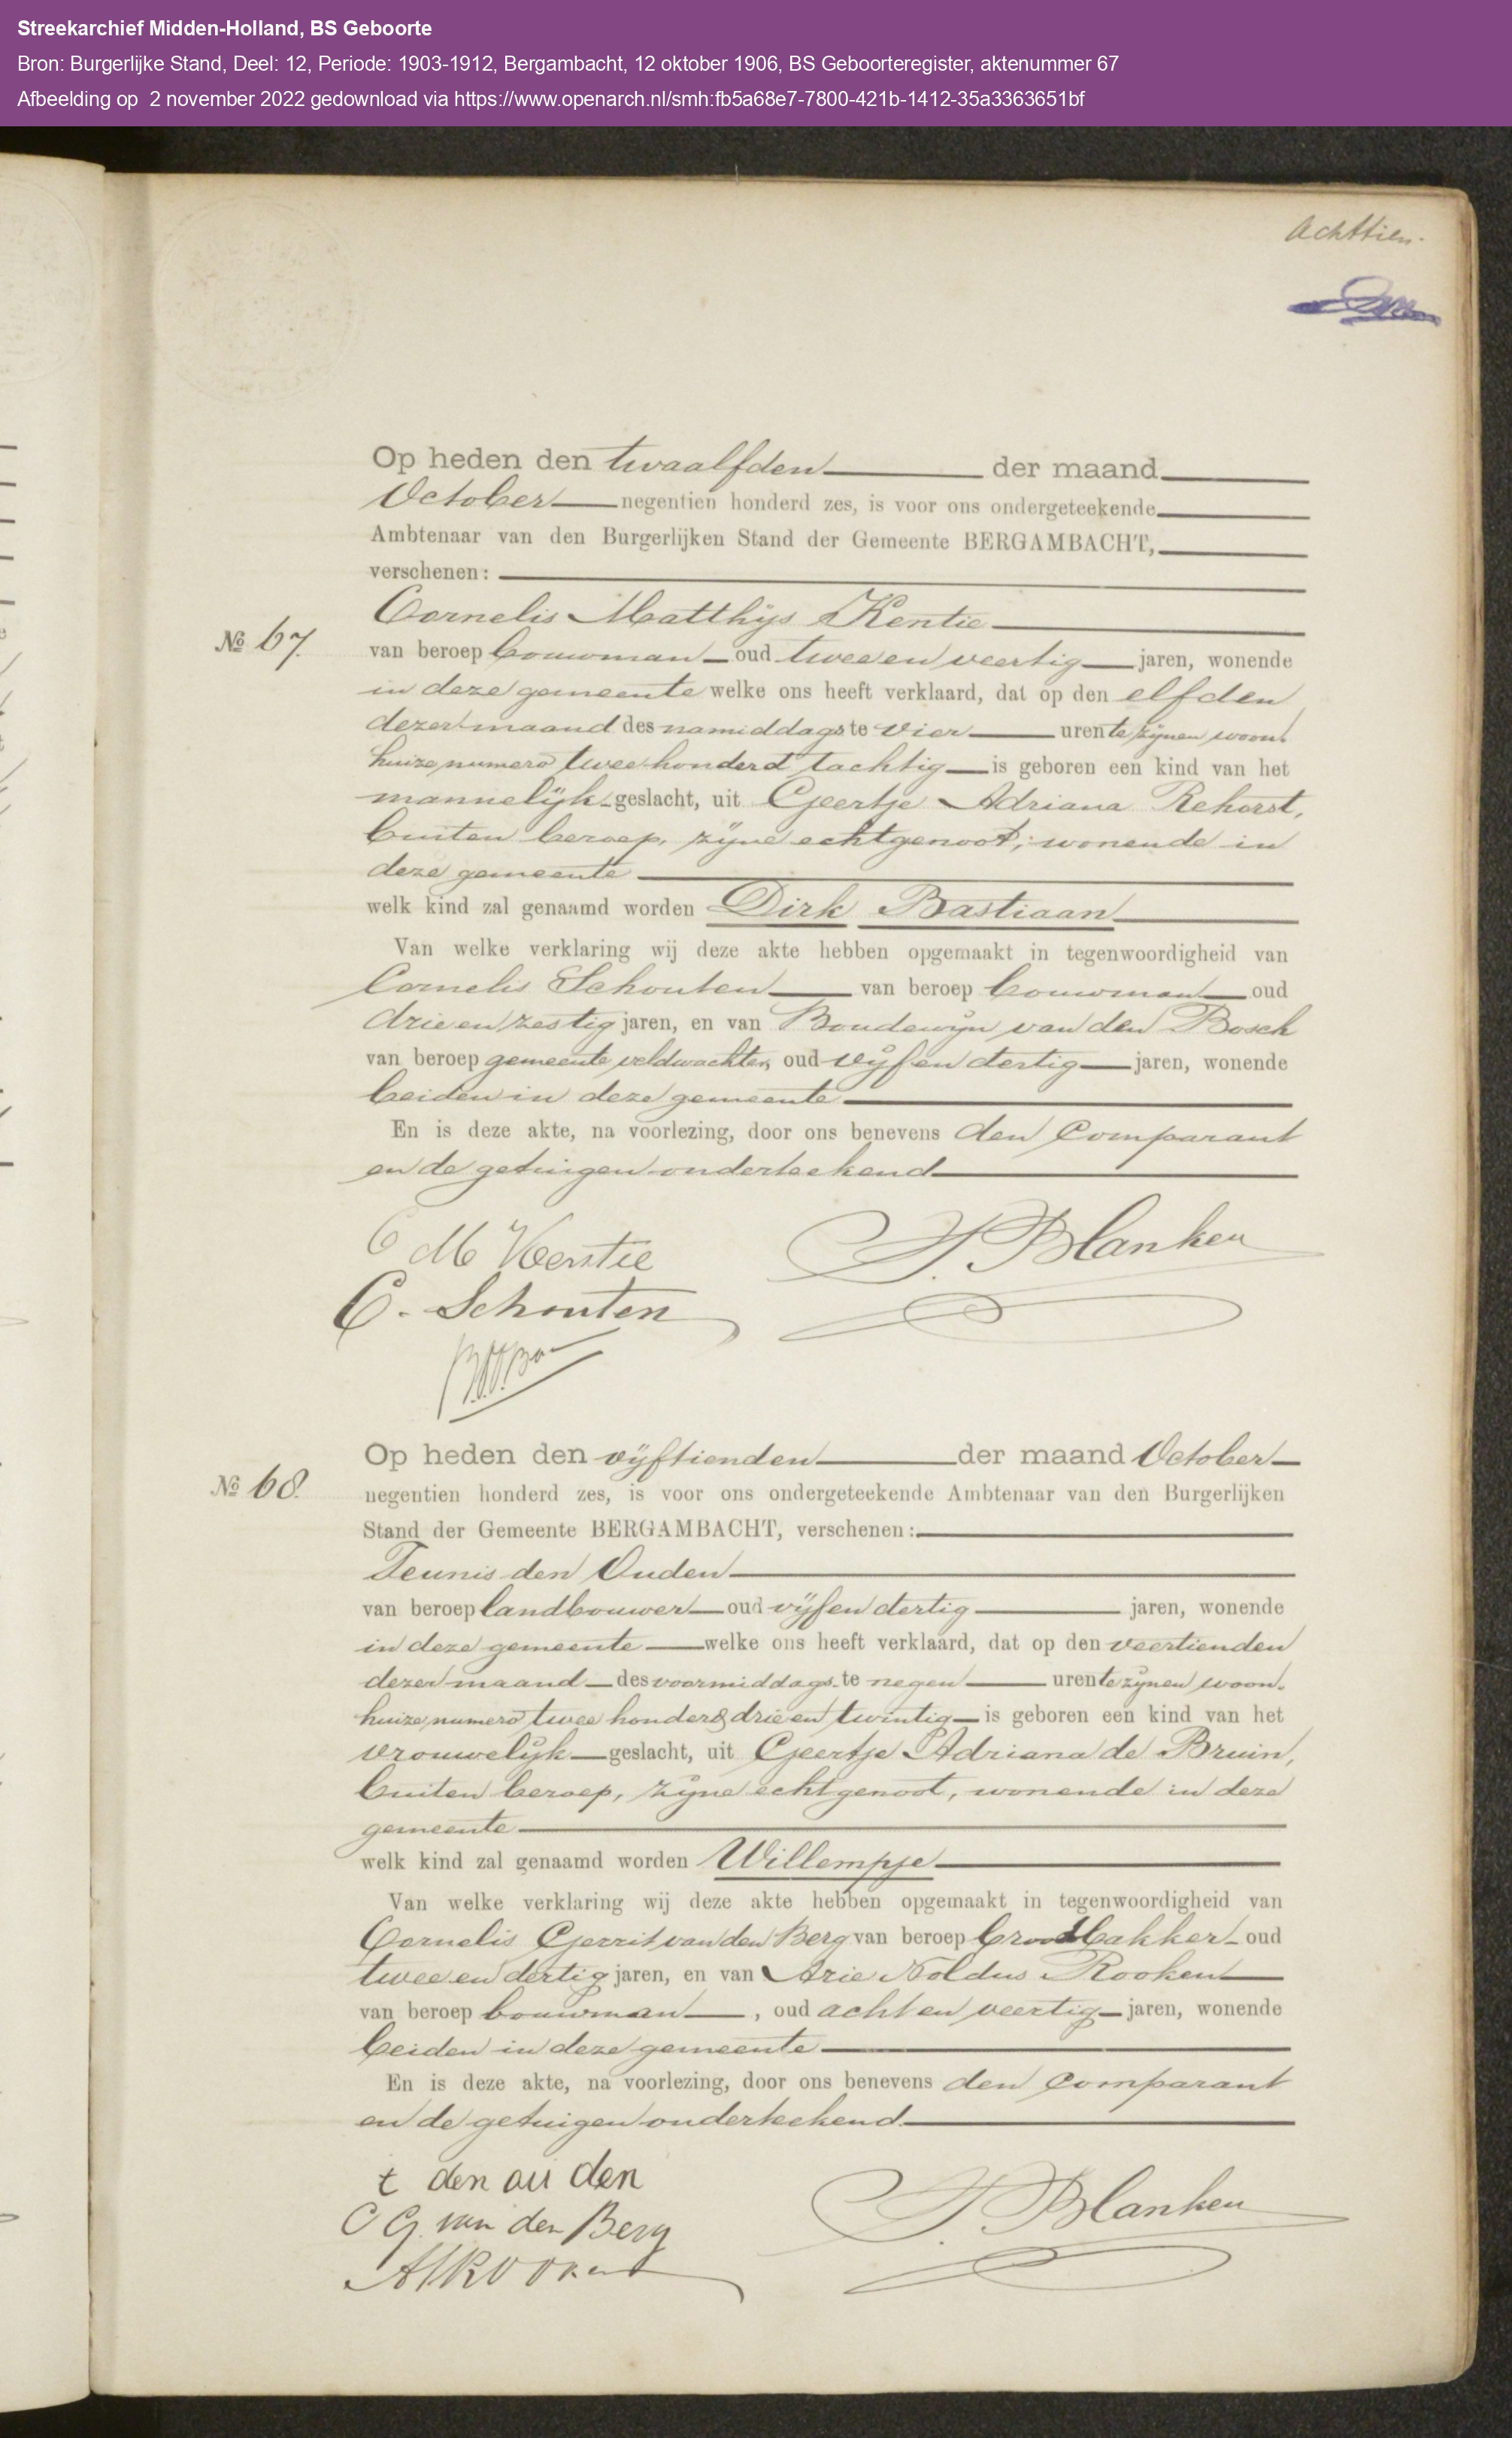 Streekarchief Midden-Holland, BS Geboorte
Bron: Burgerlijke Stand, Deel: 12, Periode: 1903-1912, Bergambacht, 12 oktober 1906, BS Geboorteregister, aktenummer 67
Afbeelding op 2 november 2022 gedownload via https://www.openarch.nl/smh:fb5a68e7-7800-421b-1412-35a3363651bf
Achttien.
Op heden den twaalfden der maand
October negentien honderd zes, is voor ons ondergeteekende
Ambtenaar van den Burgerlijken Stand der Gemeente BERGAMBACHT,
verschenen:
Cornelis Matthijs Kentie
№ 67.
van beroep bouwman oud twee en veertig jaren, wonende
in deze gemeente welke ons heeft verklaard, dat op den elfden
dezer maand des namiddags te vier uren te zijnen woon-
huize, numero twee honderd tachtig is geboren een kind van het
mannelijk geslacht, uit Geertje Adriana Rehorst,
buiten beroep, zijne echtgenoot, wonende in
deze gemeente
welk kind zal genaamd worden Dirk Bastiaan
Van welke verklaring wij deze akte hebben opgemaakt in tegenwoordigheid van
Cornelis Schouten van beroep bouwman oud
drie en zestig jaren, en van Boudewijn van den Bosch
van beroep gemeente veldwachter, oud vijf en dertig jaren, wonende
beiden in deze gemeente
En is deze akte, na voorlezing, door ons benevens den Comparant
en de getuigen onderteekend
C M Kentie
Blanken
C. Schouten
Op heden den vijftienden der maand October
№ 68.
negentien honderd zes, is voor ons ondergeteekende Ambtenaar van den Burgerlijken
Stand der Gemeente BERGAMBACHT, verschenen:
Teunis den Ouden
van beroep landbouwer oud vijf en dertig jaren, wonende
in deze gemeente welke ons heeft verklaard, dat op den veertienden
dezer maand des voormiddags te negen uren te zijnen woon-
huize, numero twee honderd drie en twintig is geboren een kind van het
vrouwelijk geslacht, uit Geertje Adriana de Bruin,
buiten beroep, zijne echtgenoot, wonende in deze
gemeente
welk kind zal genaamd worden Willempje
Van welke verklaring wij deze akte hebben opgemaakt in tegenwoordigheid van
Cornelis Gerrit van den Berg van beroep broodbakker oud
twee en dertig jaren, en van Arie Noldus Rooken
van beroep bouwman, oud acht en veertig jaren, wonende
beiden in deze gemeente
En is deze akte, na voorlezing, door ons benevens den Comparant
en de getuigen onderteekend
t den ou den
Blanken
C G. van den Berg